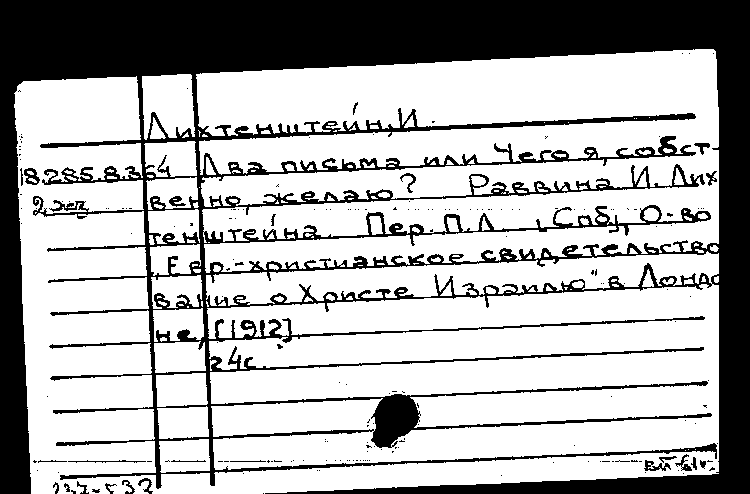 Лихтенштейн, И.
18.285.8.364 Два письма или Чего я, собст-
2 экз венно, желаю? Раввина И. Лих
тенштейна. Пер. П.Л. [Спб], О-во
"Евр.-христианское свидетельство
вание о Христе Израилю" в Лондо
не, [1912].
24с.
237-532